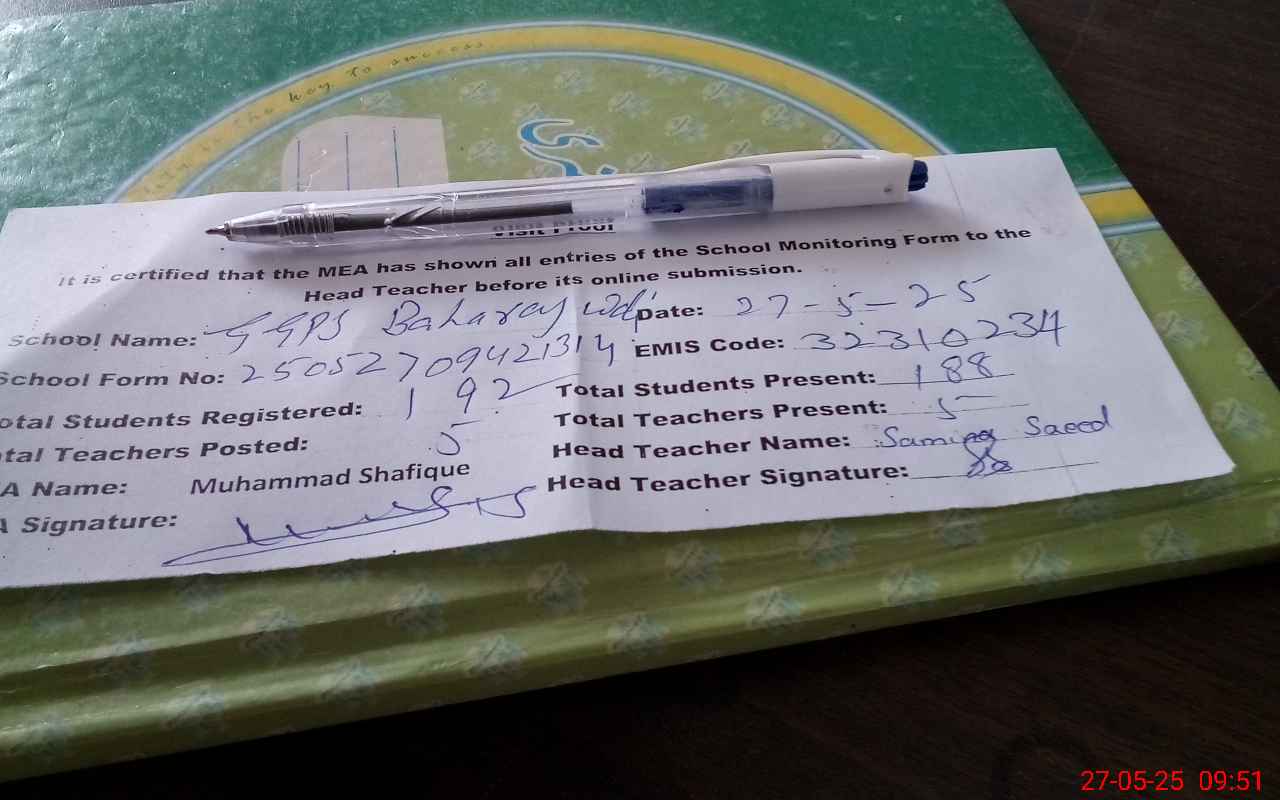 is the key to success
Visit Proof
It is certified that the MEA has shown all entries of the School Monitoring Form to the
Head Teacher before its online submission.
School Name: GGPS Baharay Wali Date: 27-5-25
School Form No: 25052709421314 EMIS Code: 32310234
otal Students Registered: 192 Total Students Present: 188
tal Teachers Posted: 5 Total Teachers Present: 5
A Name: Muhammad Shafique Head Teacher Name: Saeed
A Signature: Head Teacher Signature:
27-05-25 09:51